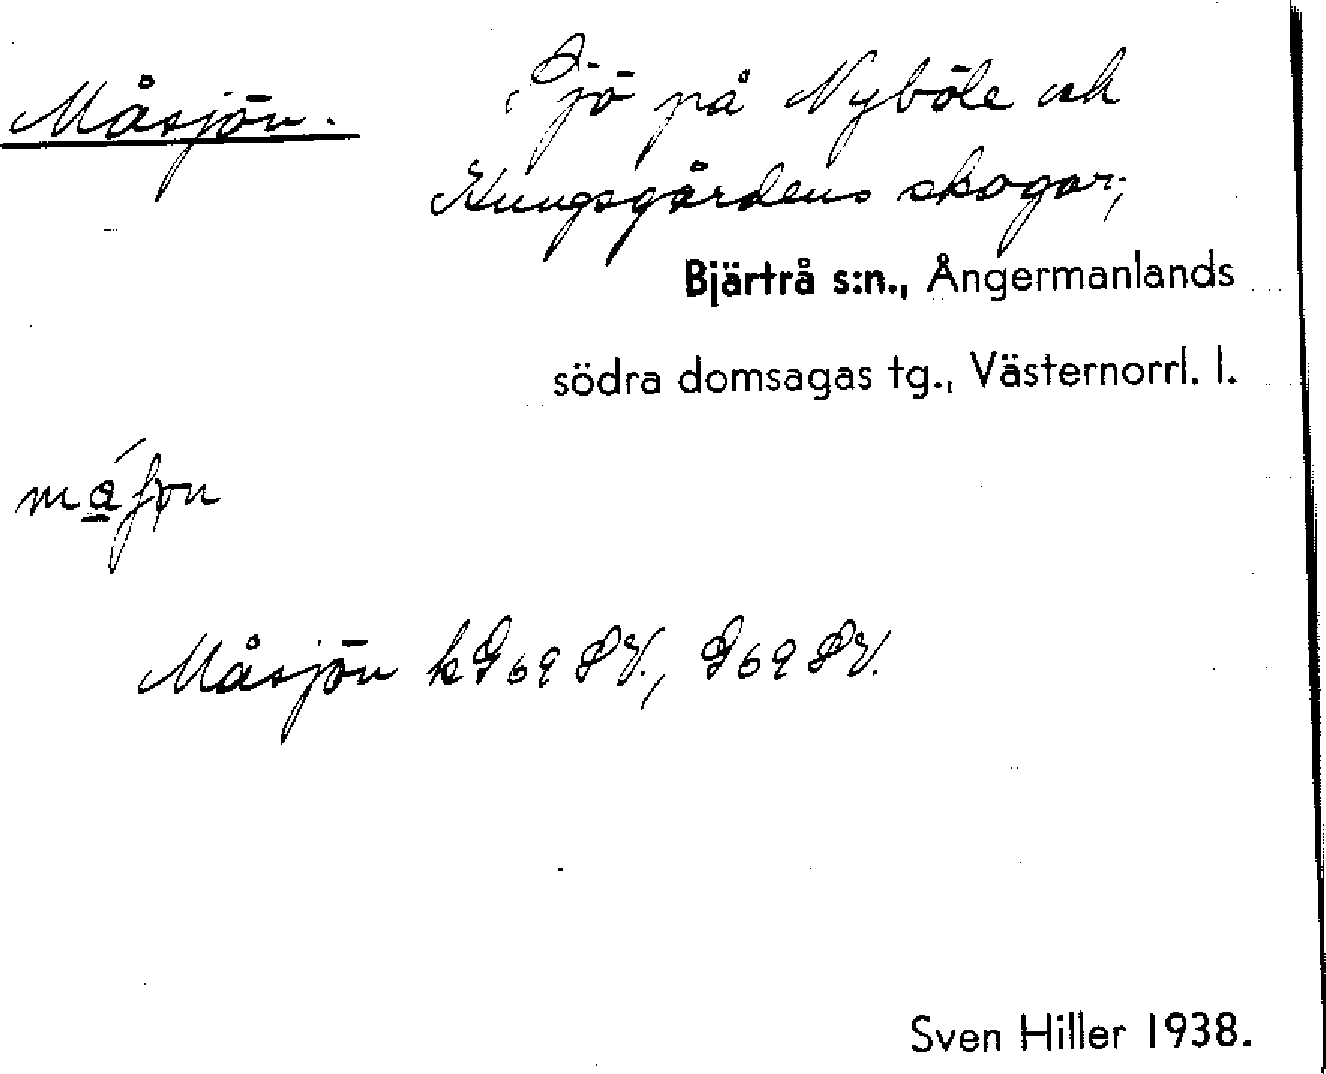 Måsjön. Sjö på Nyböle och
Kungsgårdens skogar;
Bjärtrå s:n., Ångermanlands
södra domsagas tg., Västernorrl. l.
Måsjön k G 69 SV., G 69 SV.
Sven Hiller 1938.